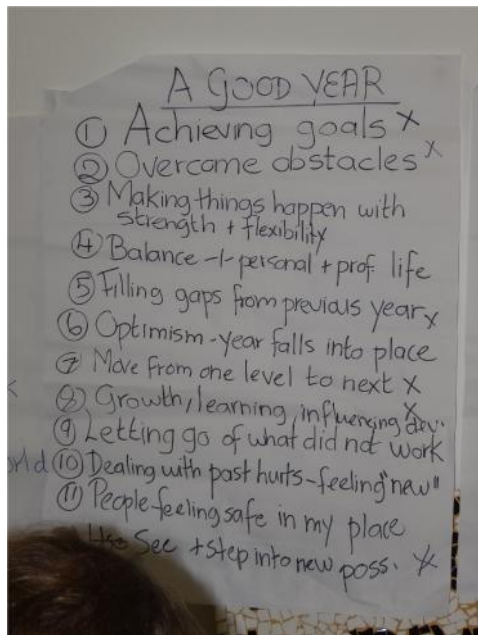 A GOOD YEAR
① Achieving goals x
② Overcome obstacles x
③ Making things happen with
strength + flexibility
④ Balance -/- personal + prof. life
⑤ Filling gaps from previous year x
⑥ Optimism - year falls into place
⑦ Move from one level to next x
⑧ Growth, learning, influencing dev. x
⑨ Letting go of what did not work
⑩ Dealing with past hurts - feeling "new"
⑪ People feeling safe in my place
See + step into new poss. x